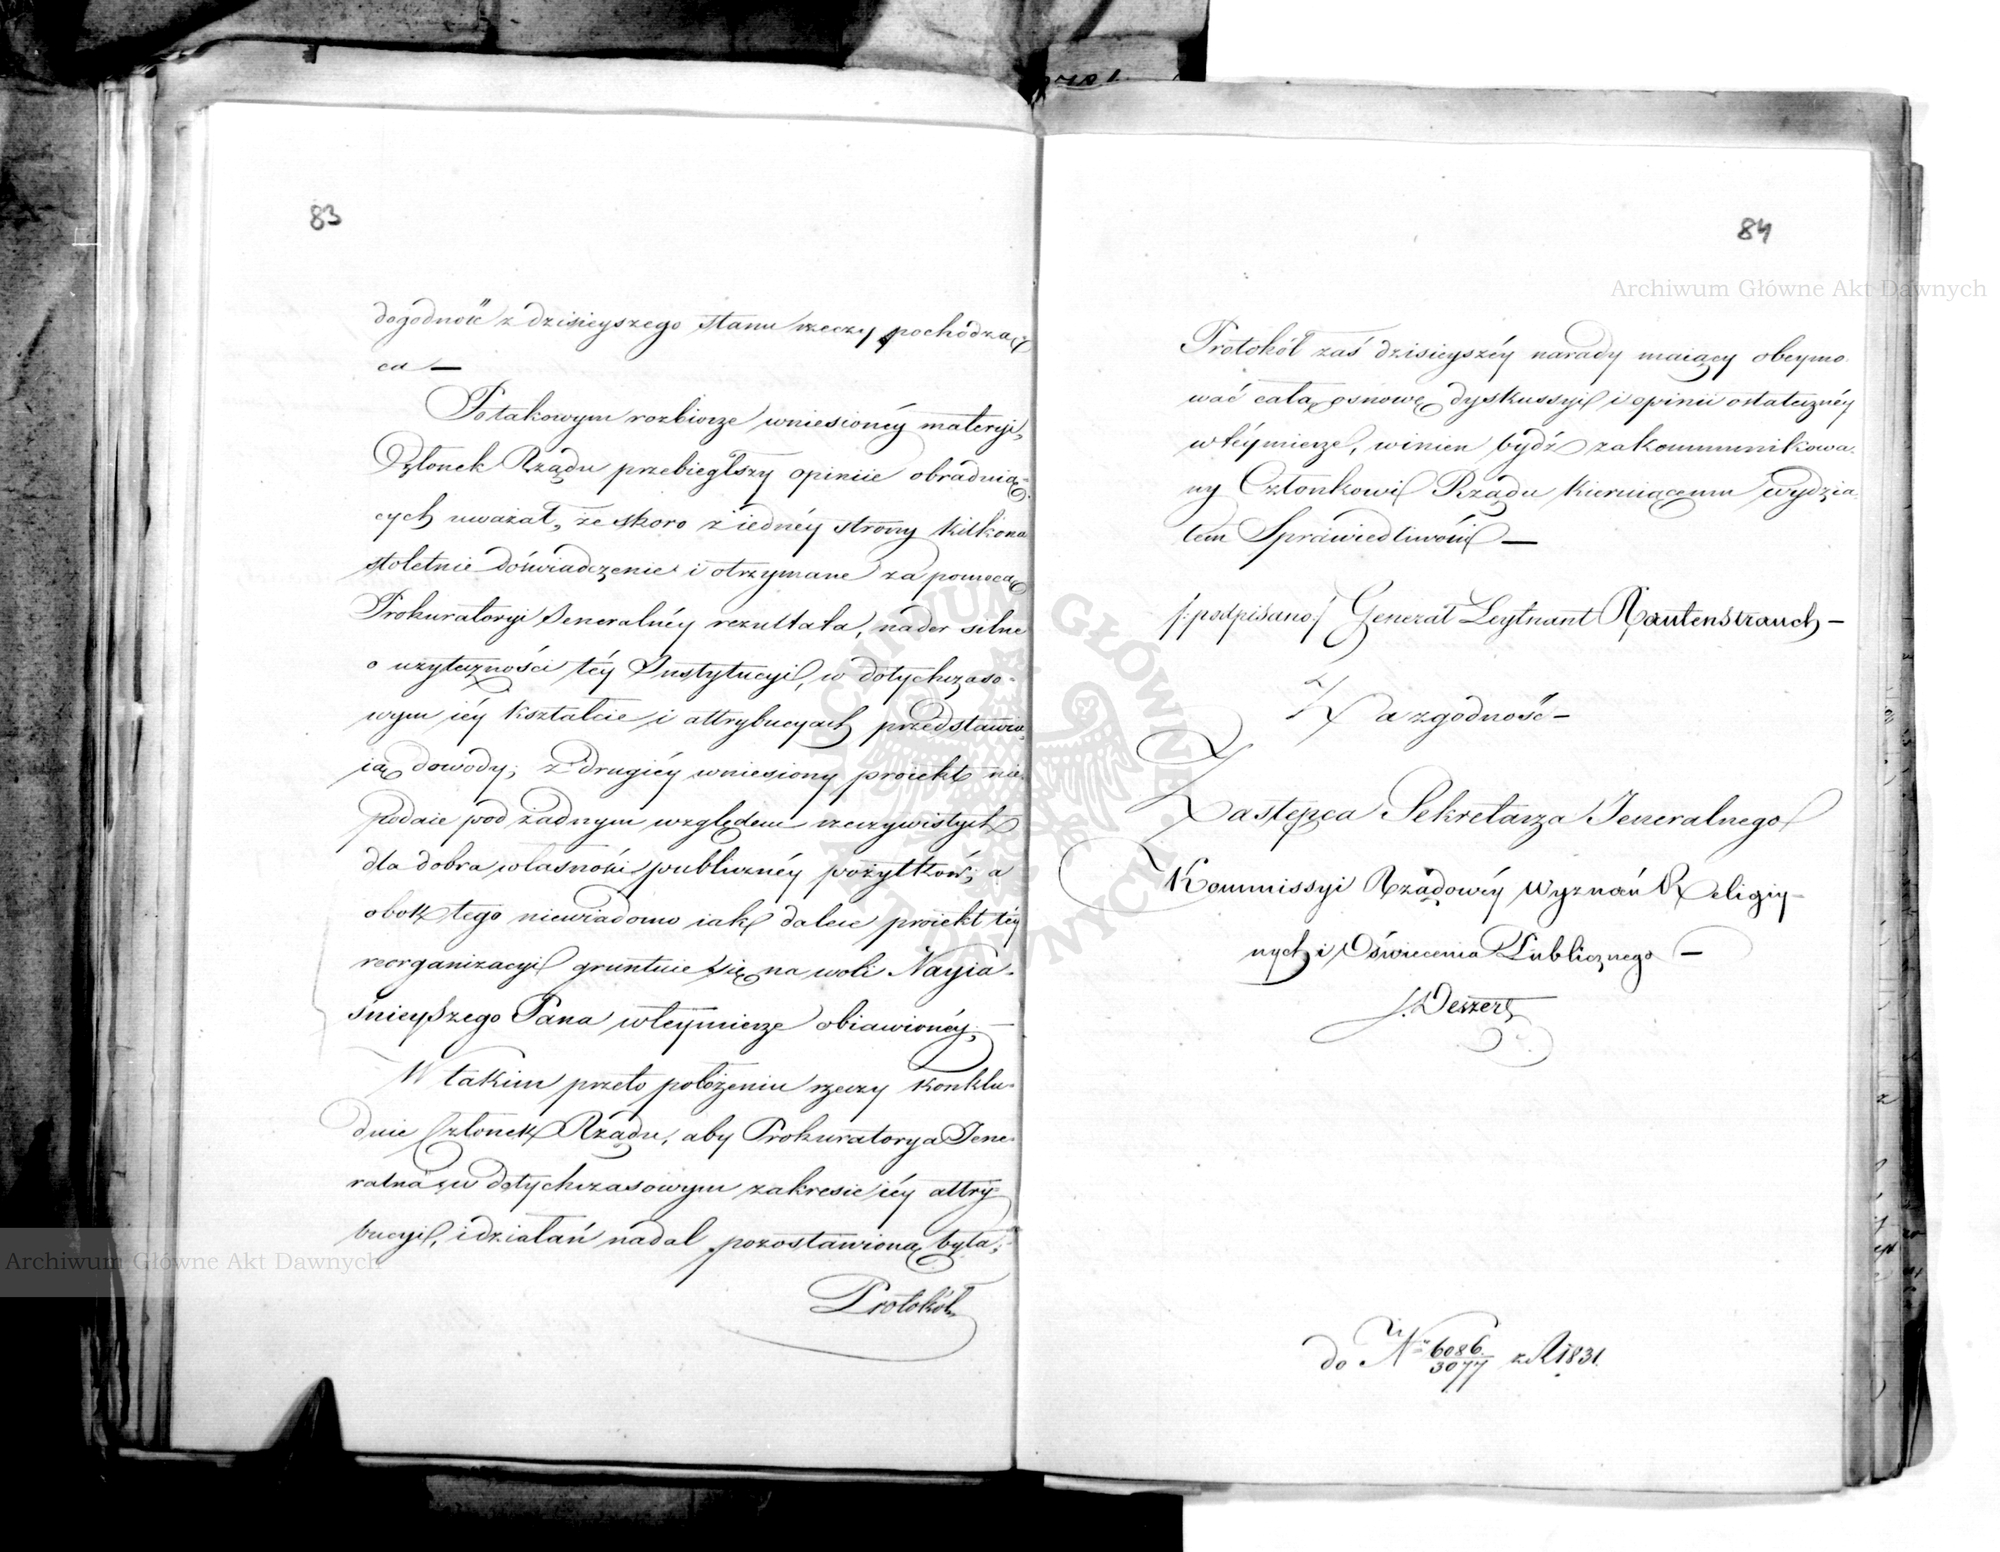 83
dogodność z dzisieyszego stanu rzeczy pochodzą
ca —
Po takowym rozbiorze wniesionéy materyi,
Członek Rządu przebiegłszy opiniie obraduią-
cych uważał, że skoro z iednéy strony kilkona
stoletnie doświadczenie i otrzymane za pomocą
Prokuratoryi Jeneralnéy rezultata, nader silne
o użyteczności téy Instytucyi, w dotychczaso-
wym iéy kształcie i attrybucyach przedstawia-
ią dowody; z drugiéy wniesiony proiekt nie-
podaie pod żadnym względem rzeczywistych
dla dobra własności publicznéy pożytków; a
obok tego niewiadomo iak dalece proiekt téy
reorganizacyi gruntuie się na woli Nayia-
śnieyszego Pana w téymierze obiawionéy. —
W takim przeto położeniu rzeczy konklu-
duie Członek Rządu, aby Prokuratorya Jene-
ralna w dotychczasowym zakresie iéy attry-
bucyi, i działań nadal pozostawioną była;
Protokół
84
Protokół zaś dzisieyszéy narady maiący obeymo-
wać całą osnowę dyskussyi i opinii ostateczney
w téymierze, winien bydź zakommunikowa-
ny Członkowi Rządu kieruiącemu wydzia-
łem Sprawiedliwości —
/:podpisano:/ Generał Leytnant Rautenstrauch —
Za zgodność —
Zastępca Sekretarza Jeneralnego
Kommissyi Rządowéy Wyznań Religiy-
nych i Oświecenia Publicznego —
J. Deszert
do Nr 6086/3077 z R 1831.
Archiwum Główne Akt Dawnych
Archiwum Główne Akt Dawnych
ARCHIWUM GŁÓWNE AKT DAWNYCH